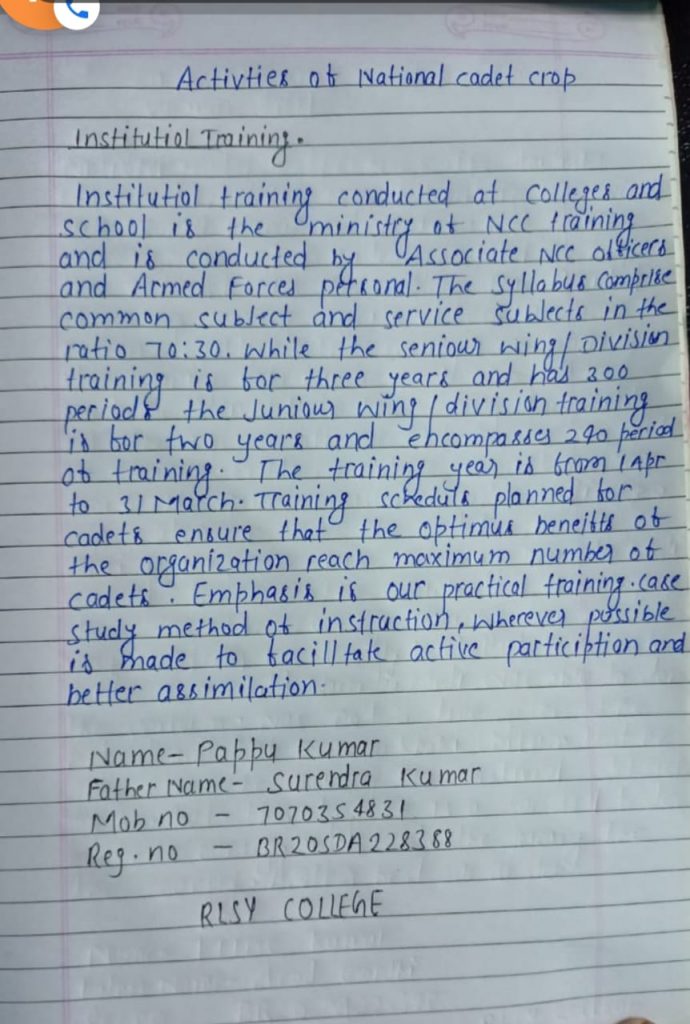 Activties of National cadet crop
Institutiol Training.
Institutiol training conducted at colleges and
school is the ministry of NCC training
and is conducted by Associate NCC officers
and Armed Forces personal. The syllabus comprise
common subject and service subjects in the
ratio 70:30. While the seniour wing/Division
training is for three years and has 300
periods the Juniour wing/division training
is for two years and encompasses 240 period
of training. The training year is from 1 Apr
to 31 March. Training schedule planned for
cadets ensure that the optimus beneifts of
the organization reach maximum number of
cadets. Emphasis is our practical training.case
study method of instruction, wherever possible
is made to facilltate active particiption and
better assimilation.
Name- Pappu Kumar
Father Name- Surendra Kumar
Mob no - 7070354831
Reg.no - BR20SDA228388
RLSY COLLEGE